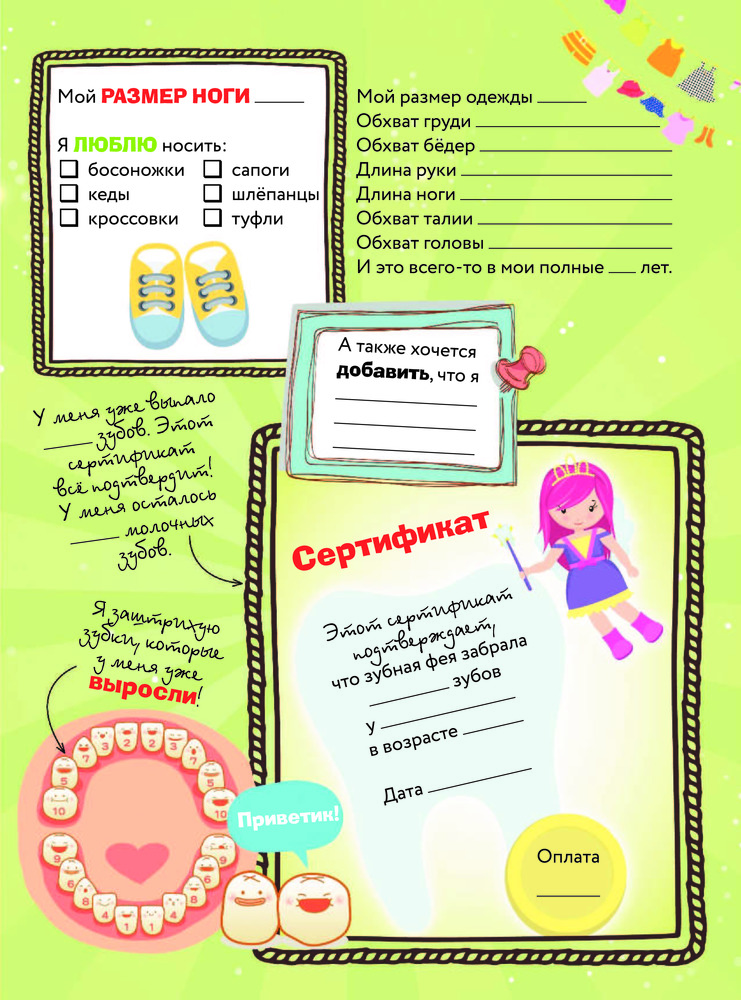 Мой РАЗМЕР НОГИ _____
Я ЛЮБЛЮ носить:
босоножки
кеды
кроссовки
сапоги
шлёпанцы
туфли
Мой размер одежды _____
Обхват груди _____
Обхват бёдер _____
Длина руки _____
Длина ноги _____
Обхват талии _____
Обхват головы _____
И это всего-то в мои полные ___ лет.
А также хочется
добавить, что я
У меня уже выпало
_____ зубов. Этот
сертификат
всё подтвердит!
У меня осталось
_____ молочных
зубов.
Сертификат
Этот сертификат
подтверждает,
что зубная фея забрала
_____ зубов
у _____
в возрасте _____
Дата _____
Оплата
Я заштрихую
зубки, которые
у меня уже
выросли!
5 7 3 2 2 3 7 5
10 10
9 9
6 6
8 4 1 1 4 8
Приветик!